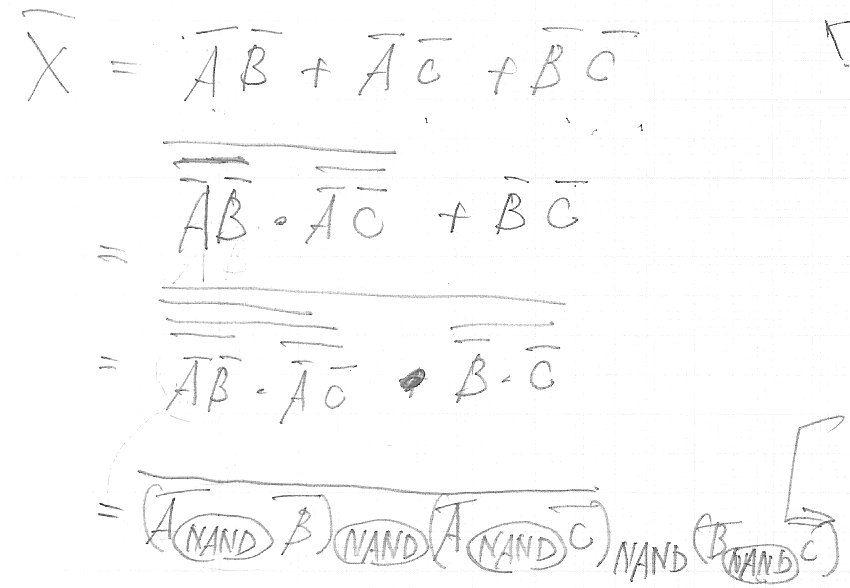 X̅ = A̅ B̅ + A̅ C̅ + B̅ C̅
= \overline{\overline{A̅ B̅} · \overline{A̅ C̅}} + B̅ C̅
= \overline{\overline{\overline{\overline{A̅ B̅} · \overline{A̅ C̅}}} · \overline{B̅ · C̅}}
= \overline{(A̅ NAND B̅) NAND (A̅ NAND C̅)} NAND (B̅ NAND C̅)